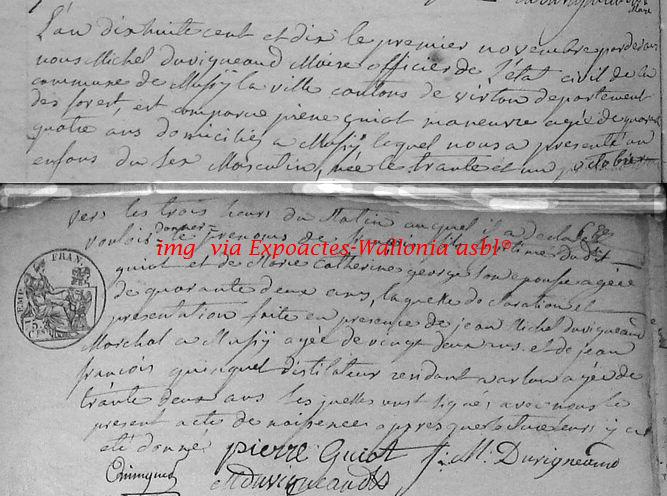 L'an dixhuite cent et dix le premier novembre pardevant
nous Michel Duvigneaud Maire officier de l'état civil de la
commune de Mussÿ la ville cantons de virton departement
des forest, est comparue piere quiot maneuvre agée de quarante
quatre ans domiciliés a Mussÿ lequel nous a presenté un
enfans du sex Masculin, née le trante et un
vers les trois heurs du Matin auquel il a declaré
vouloir donner le prenoms de
quiot et de Marie Catherine georges son epouse agée
de quarante deux ans, laquelle declaration et
presentation faite en presence de jean Michel duvigneaud
Marchal a Mussÿ agée de vingt deux ans et de jean
françois quinquet distilateur rendant a arlon agée de
trante deux ans les quelles
present acte de naissence apres que lecture leurs y
eté donné
pierre Quiot J. M. Duvigneaud
Quinquet MDuvigneaud
img via Expoactes-Wallonia asbl®
FRAN
5